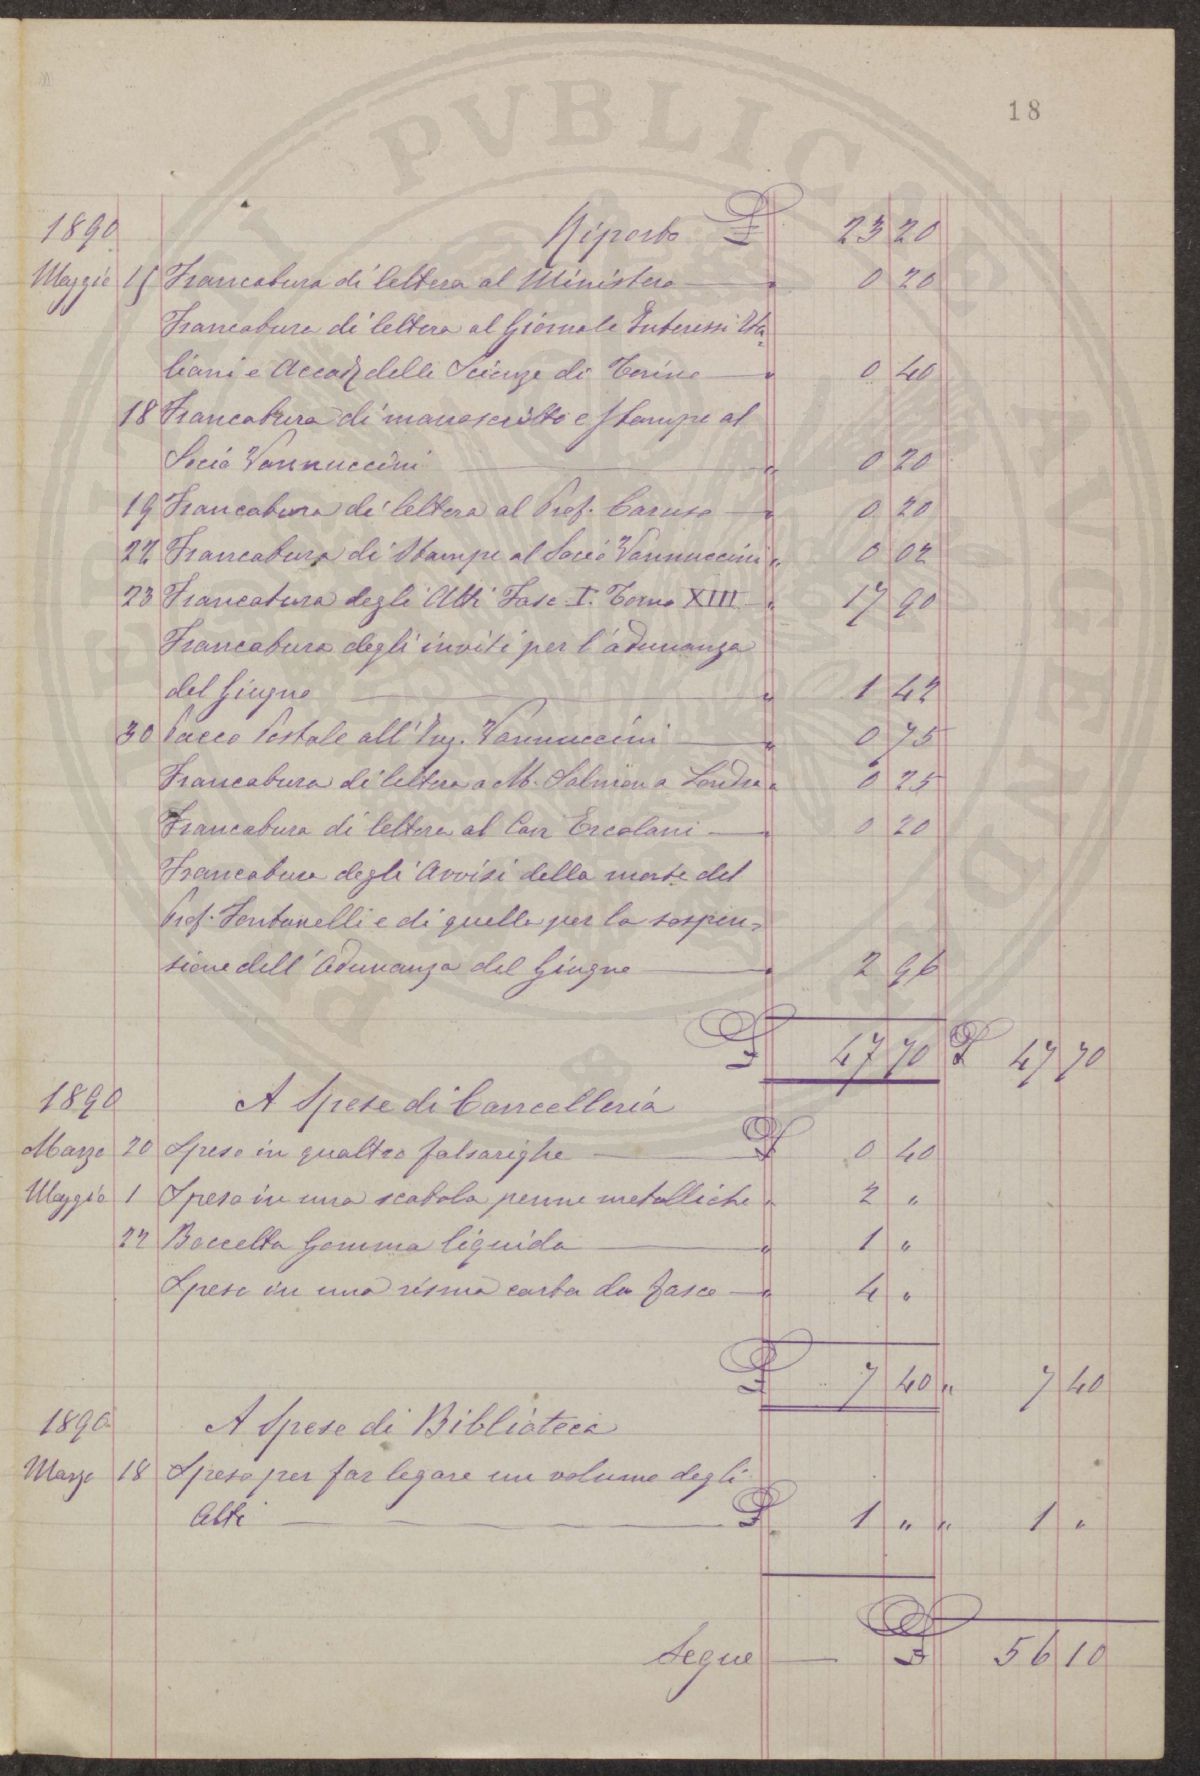 18
1890 Riporto £ 23 20
Maggio 15 Francatura di lettera al Ministero — " 0 20
Francatura di lettera al Giornale Interessi Ita=
liani e Accad. delle Scienze di Torino — " 0 40
18 Francatura di manoscritto e stampe al
Socio Vannuccini — " 0 20
19 Francatura di lettera al Prof. Caruso — " 0 20
22 Francatura di Stampe al Socio Vannuccini " 0 02
23 Francatura degli Atti Fasc. I. Tomo XIII — " 17 90
Francatura degli inviti per l'adunanza
del Giugno — " 1 42
30 Pacco Postale all'Ing. Vannuccini — " 0 75
Francatura di lettera a M. Salmon a Londra " 0 25
Francatura di lettera al Cav Ercolani — " 0 20
Francatura degli Avvisi della morte del
Prof. Fontanelli e di quelli per la sospen=
sione dell'Adunanza del Giugno — " 2 96
£ 47 70 £ 47 70
1890 A Spese di Cancelleria
Marzo 20 Spese in quattro falsarighe — £ 0 40
Maggio 1 Spesa in una scatola penne metalliche " 2 "
22 Boccetta Gomma liquida — " 1 "
Spese in una risma carta da fasce — " 4 "
£ 7 40 " 7 40
1890 A Spese di Biblioteca
Marzo 18 Spesa per far legare un volume degli
Atti — £ 1 " " 1 "
Segue — £ 56 10
PVBLICAE